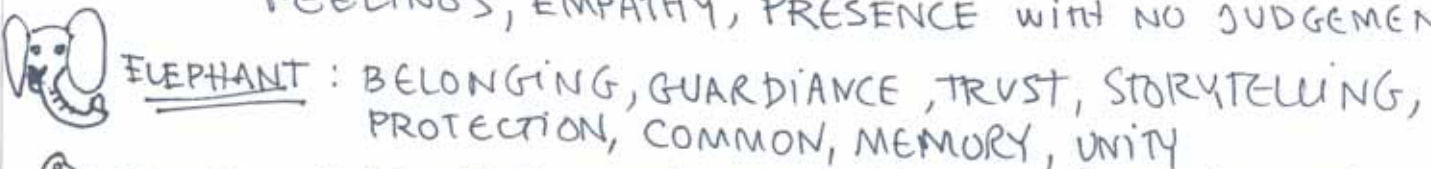 FEELINGS, EMPATHY, PRESENCE with NO JUDGEMEN
ELEPHANT : BELONGING, GUARDIANCE, TRUST, STORYTELLING,
PROTECTION, COMMON, MEMORY, UNITY